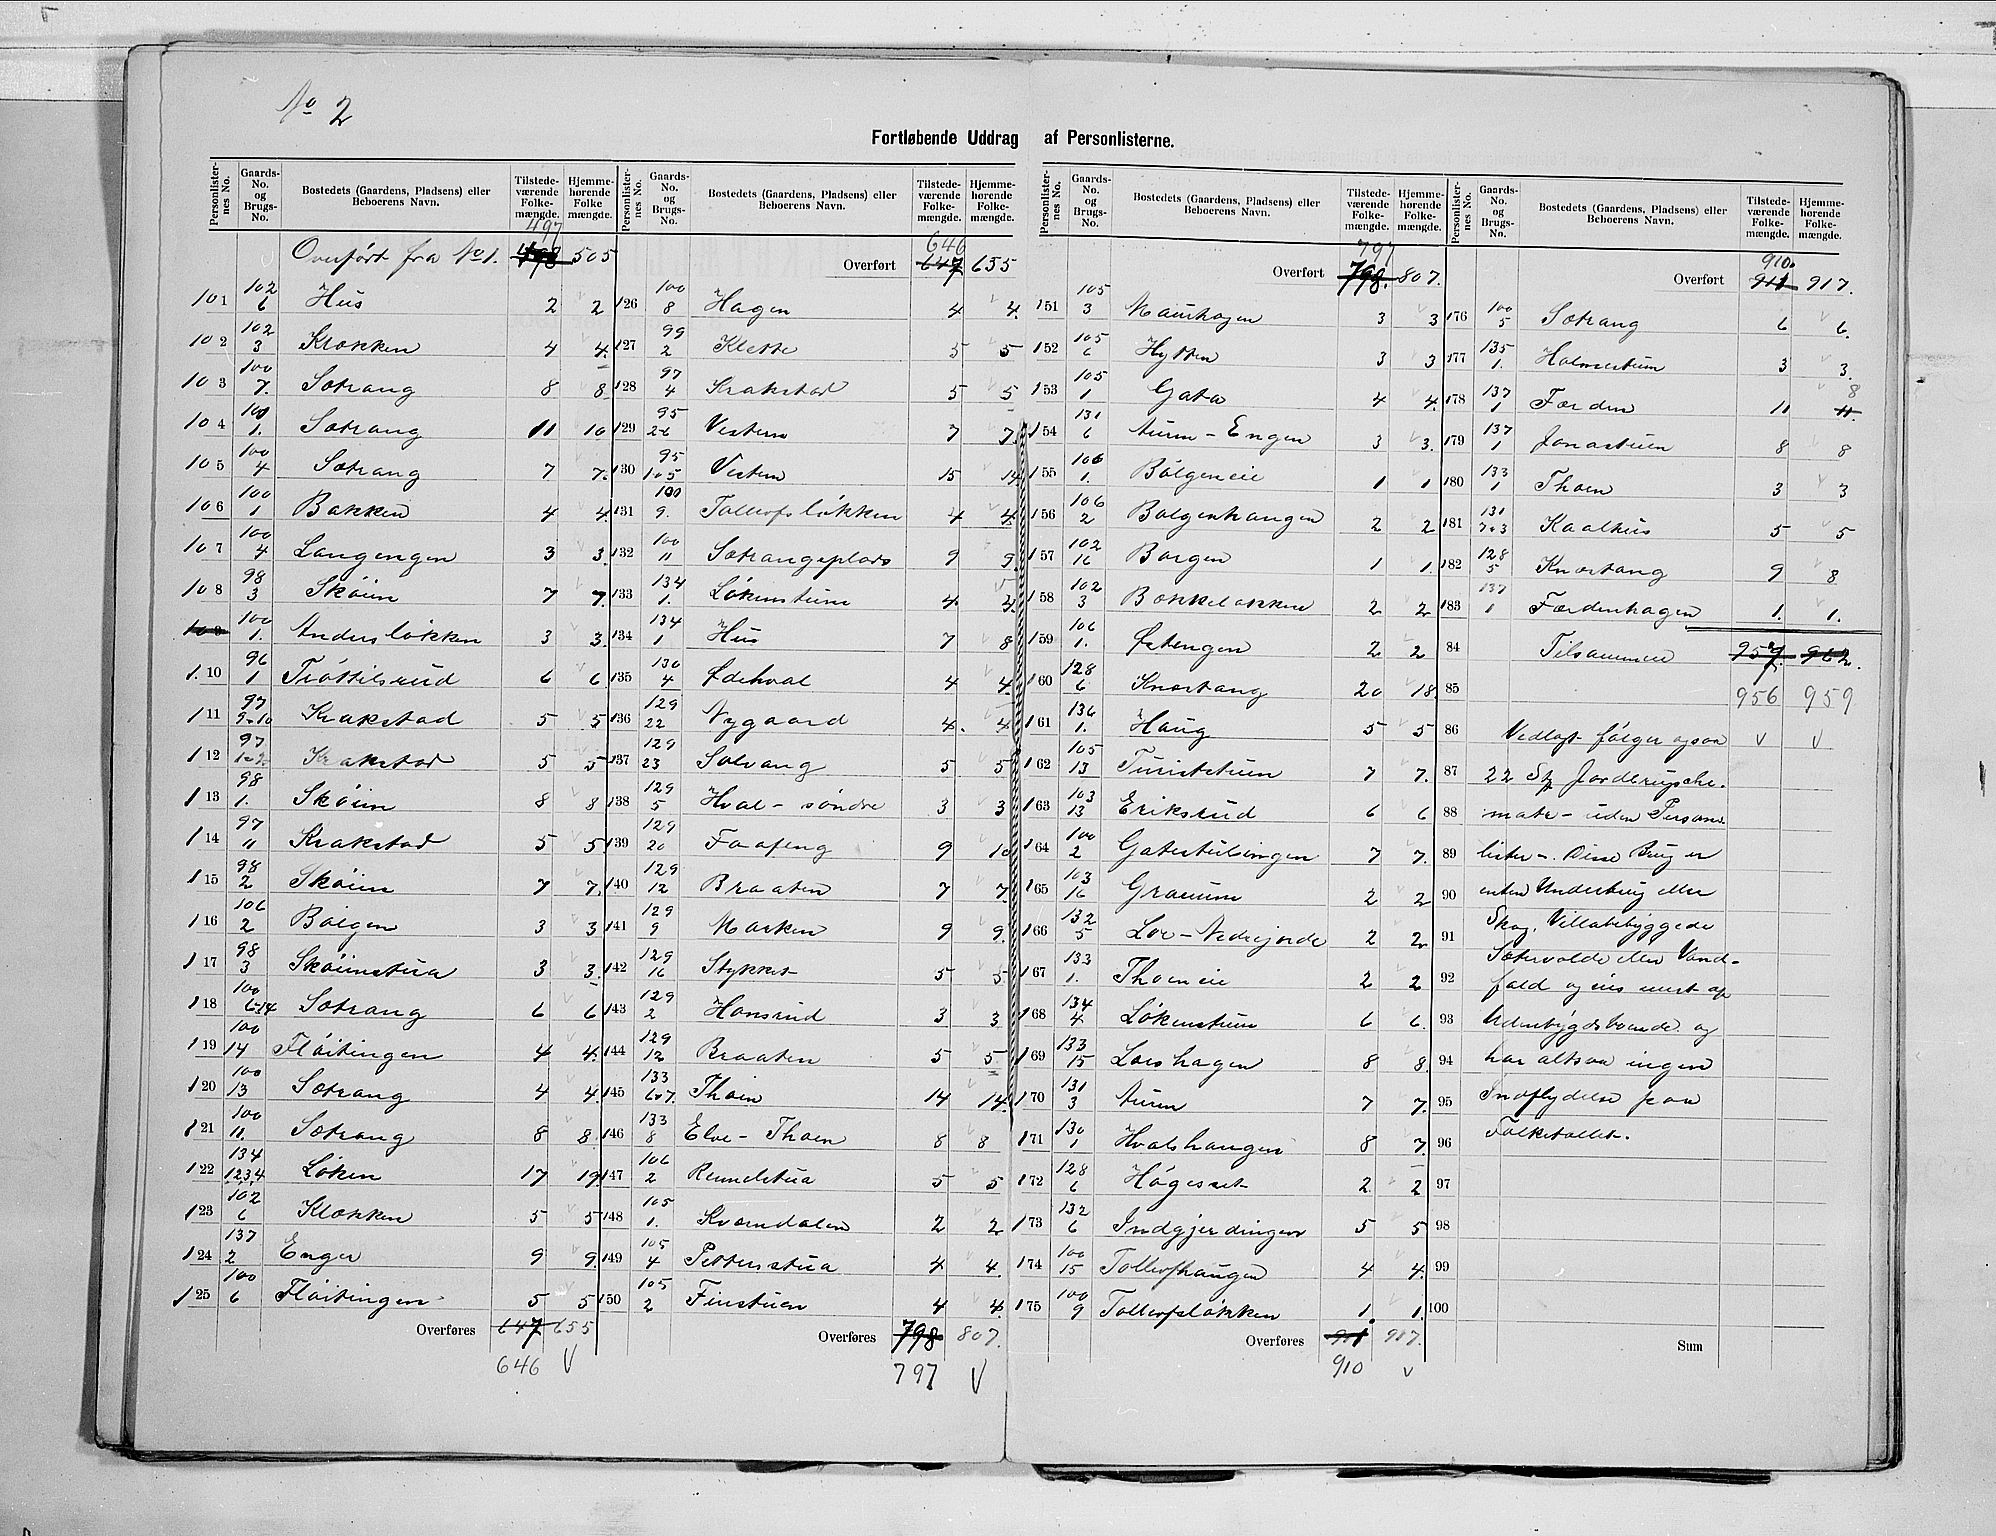 No 2
Fortløbende Uddrag af Personlisterne.
Personlisternes No. Gaards-No. og Brugs-No. Bostedets (Gaardens, Pladsens) eller Beboerens Navn. Tilstedeværende Folkemængde. Hjemmehørende Folkemængde.
497
Overført fra No 1. 498 505
101 102/6 Hus 2 2
102 102/3 Krokken 4 4.
103 100/7. Sætrang 8 8
104 100/1. Sætrang 11 10
105 100/4 Sætrang 7 7.
106 100/1 Bakken 4 4.
107 100/4 Langengen 3 3.
108 98/3 Skøien 7 7.
109 100/1. Andersløkken 3 3.
110 96/1 Trøttilsrud 6 6
111 97/9-10 Krakstad 5 5
112 97/1-2 Krakstad 5 5
113 98/1. Skøien 8 8
114 97/11 Krakstad 5 5.
115 98/2 Skøien 7 7.
116 106/2 Bølgen 3 3
117 98/3 Skøienstua 3 3.
118 100/6-14 Sætrang 6 6
119 100/14 Fløitingen 4 4.
120 100/13 Sætrang 4 4.
121 100/11. Sætrang 8 8.
122 134/1,2,3,4 Løken 17 19
123 102/6 Klokken 5 5
124 137/2 Enger 9 9.
125 100/6 Fløitingen 5 5
Overføres 647 655
646 V
Personlisternes No. Gaards-No. og Brugs-No. Bostedets (Gaardens, Pladsens) eller Beboerens Navn. Tilstedeværende Folkemængde. Hjemmehørende Folkemængde.
646
Overført 647 655
126 100/8 Hagen 4 4.
127 99/2 Klette 5 5
128 97/4 Krakstad 5 5
129 95/26 Vestern 7 7.
130 95/105 Vestern 15 14
131 100/9. Tollefsløkken 4 4
132 100/11 Sætrangsplads 9 9.
133 134/1. Løkenstuen 4 4
134 134/1 Hus 7 8
135 130/4 Ødehval 4 4
136 129/22 Nygaard 4. 4
137 129/23 Solvang 5 5
138 129/5 Hval-søndre 3 3
139 129/20 9 10
140 129/12 Braaten 7 7
141 129/9 Marken 9 9.
142 129/16 Stykket 5 5
143 129/2 Hansrud 3 3
144 129/12 Braaten 5 5
145 133/6o7. Thoen 14 14.
146 133/8 Elve-Thoen 8 8
147 106/2 Reundstua 5 5
148 105/1. Kværndalen 2 2
149 105/4 Pettersstua 4 4.
150 105/2 Finstuen 4 4.
Overføres 798 807.
797 V
Personlisternes No. Gaards-No. og Brugs-No. Bostedets (Gaardens, Pladsens) eller Beboerens Navn. Tilstedeværende Folkemængde. Hjemmehørende Folkemængde.
797
Overført 798. 807.
151 105/3 Maurhagen 3 3
152 105/6 Hytten 3 3
153 105/1 Gata 4 4.
154 131/6 Aurm-Engen 3 3.
155 106/1. Bølgeneie 1 1
156 106/2 Bølgenhaugen 2 2
157 102/16 Borgen 1 1.
158 102/3 Bakkeløkken 2 2
159 106/1. Østengen 2 2
160 128/6 Knæstang 20 18.
161 136/1. Haug 5 5
162 105/13 Turistetuen 7 7.
163 103/13 Eriksrud 6 6
164 100/2 Gatestubingen 7 7.
165 103/16 Granum 2 2
166 132/5 Loe-Nedrejorde 2 2
167 133/1. Thoeneie 2 2
168 134/4 Løkenstuen 6 6.
169 133/15 Loeshagen 8 8.
170 131/3 Aurm 7 7.
171 130/1 Hvalshaugen 8 7.
172 128/6 Høgesset 2 2
173 132/6 Indgjerdingen 5 5
174 100/15 Tollefhaugen 4 4.
175 100/9 Tollefsløkken 1. 1.
Overføres 911 917.
910 V
Personlisternes No. Gaards-No. og Brugs-No. Bostedets (Gaardens, Pladsens) eller Beboerens Navn. Tilstedeværende Folkemængde. Hjemmehørende Folkemængde.
910
Overført 911 917.
176 100/5 Sætrang 6 6.
177 135/1. Holmestuen 3 3.
178 137/1 Færden 11 11 8
179 137/1 Jonastuen 8 8
180 133/1 Thoen 3 3
181 131/7o3 Kaalhus 5 5
182 128/5 Knæstang 9 8
183 137/1 Færdenhagen 1. 1.
84 Tilsammen 957. 962.
85 956 959
86 Vedlagt følger ogsaa V V
87 22 St. Jordbrugsske-
88 mate - uden Person-
89 lister -. Disse Brug er
90 enten Underbrug eller
91 Skog, Villabebyggede
92 Sætervolde eller Vand-
fald og eies mest af
93 Udenbygdsboende og
94 har altsaa ingen
95 Indflydelse paa
96 Folketallet.
97
98
99
100
Sum